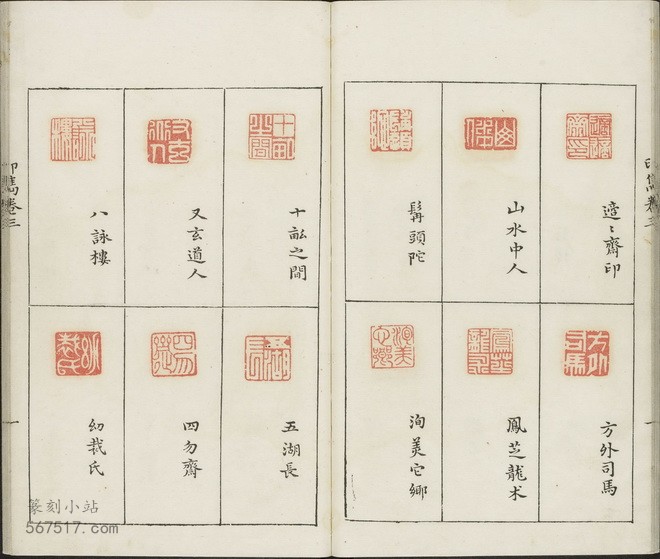 適〻齋印
山水中人
髯頭陀
方外司馬
鳳芝龍朮
洵美它鄉
十畝之間
又玄道人
八詠樓
五湖長
四勿齋
幼裁氏
印雋卷三
篆刻小站
567517.com